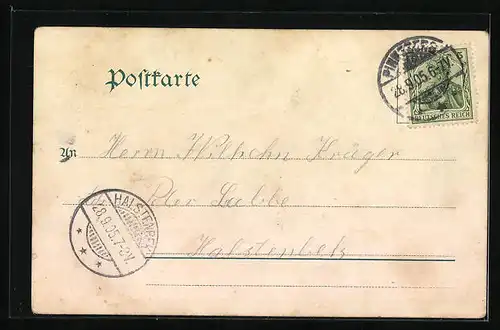 Postkarte
PINNEBERG
28.9.05.6-7
DEUTSCHES REICH
An Herrn Wilhelm Krüger
Lübbe
Halstenbek
HALSTENBEK
28.9.05.7-8V.